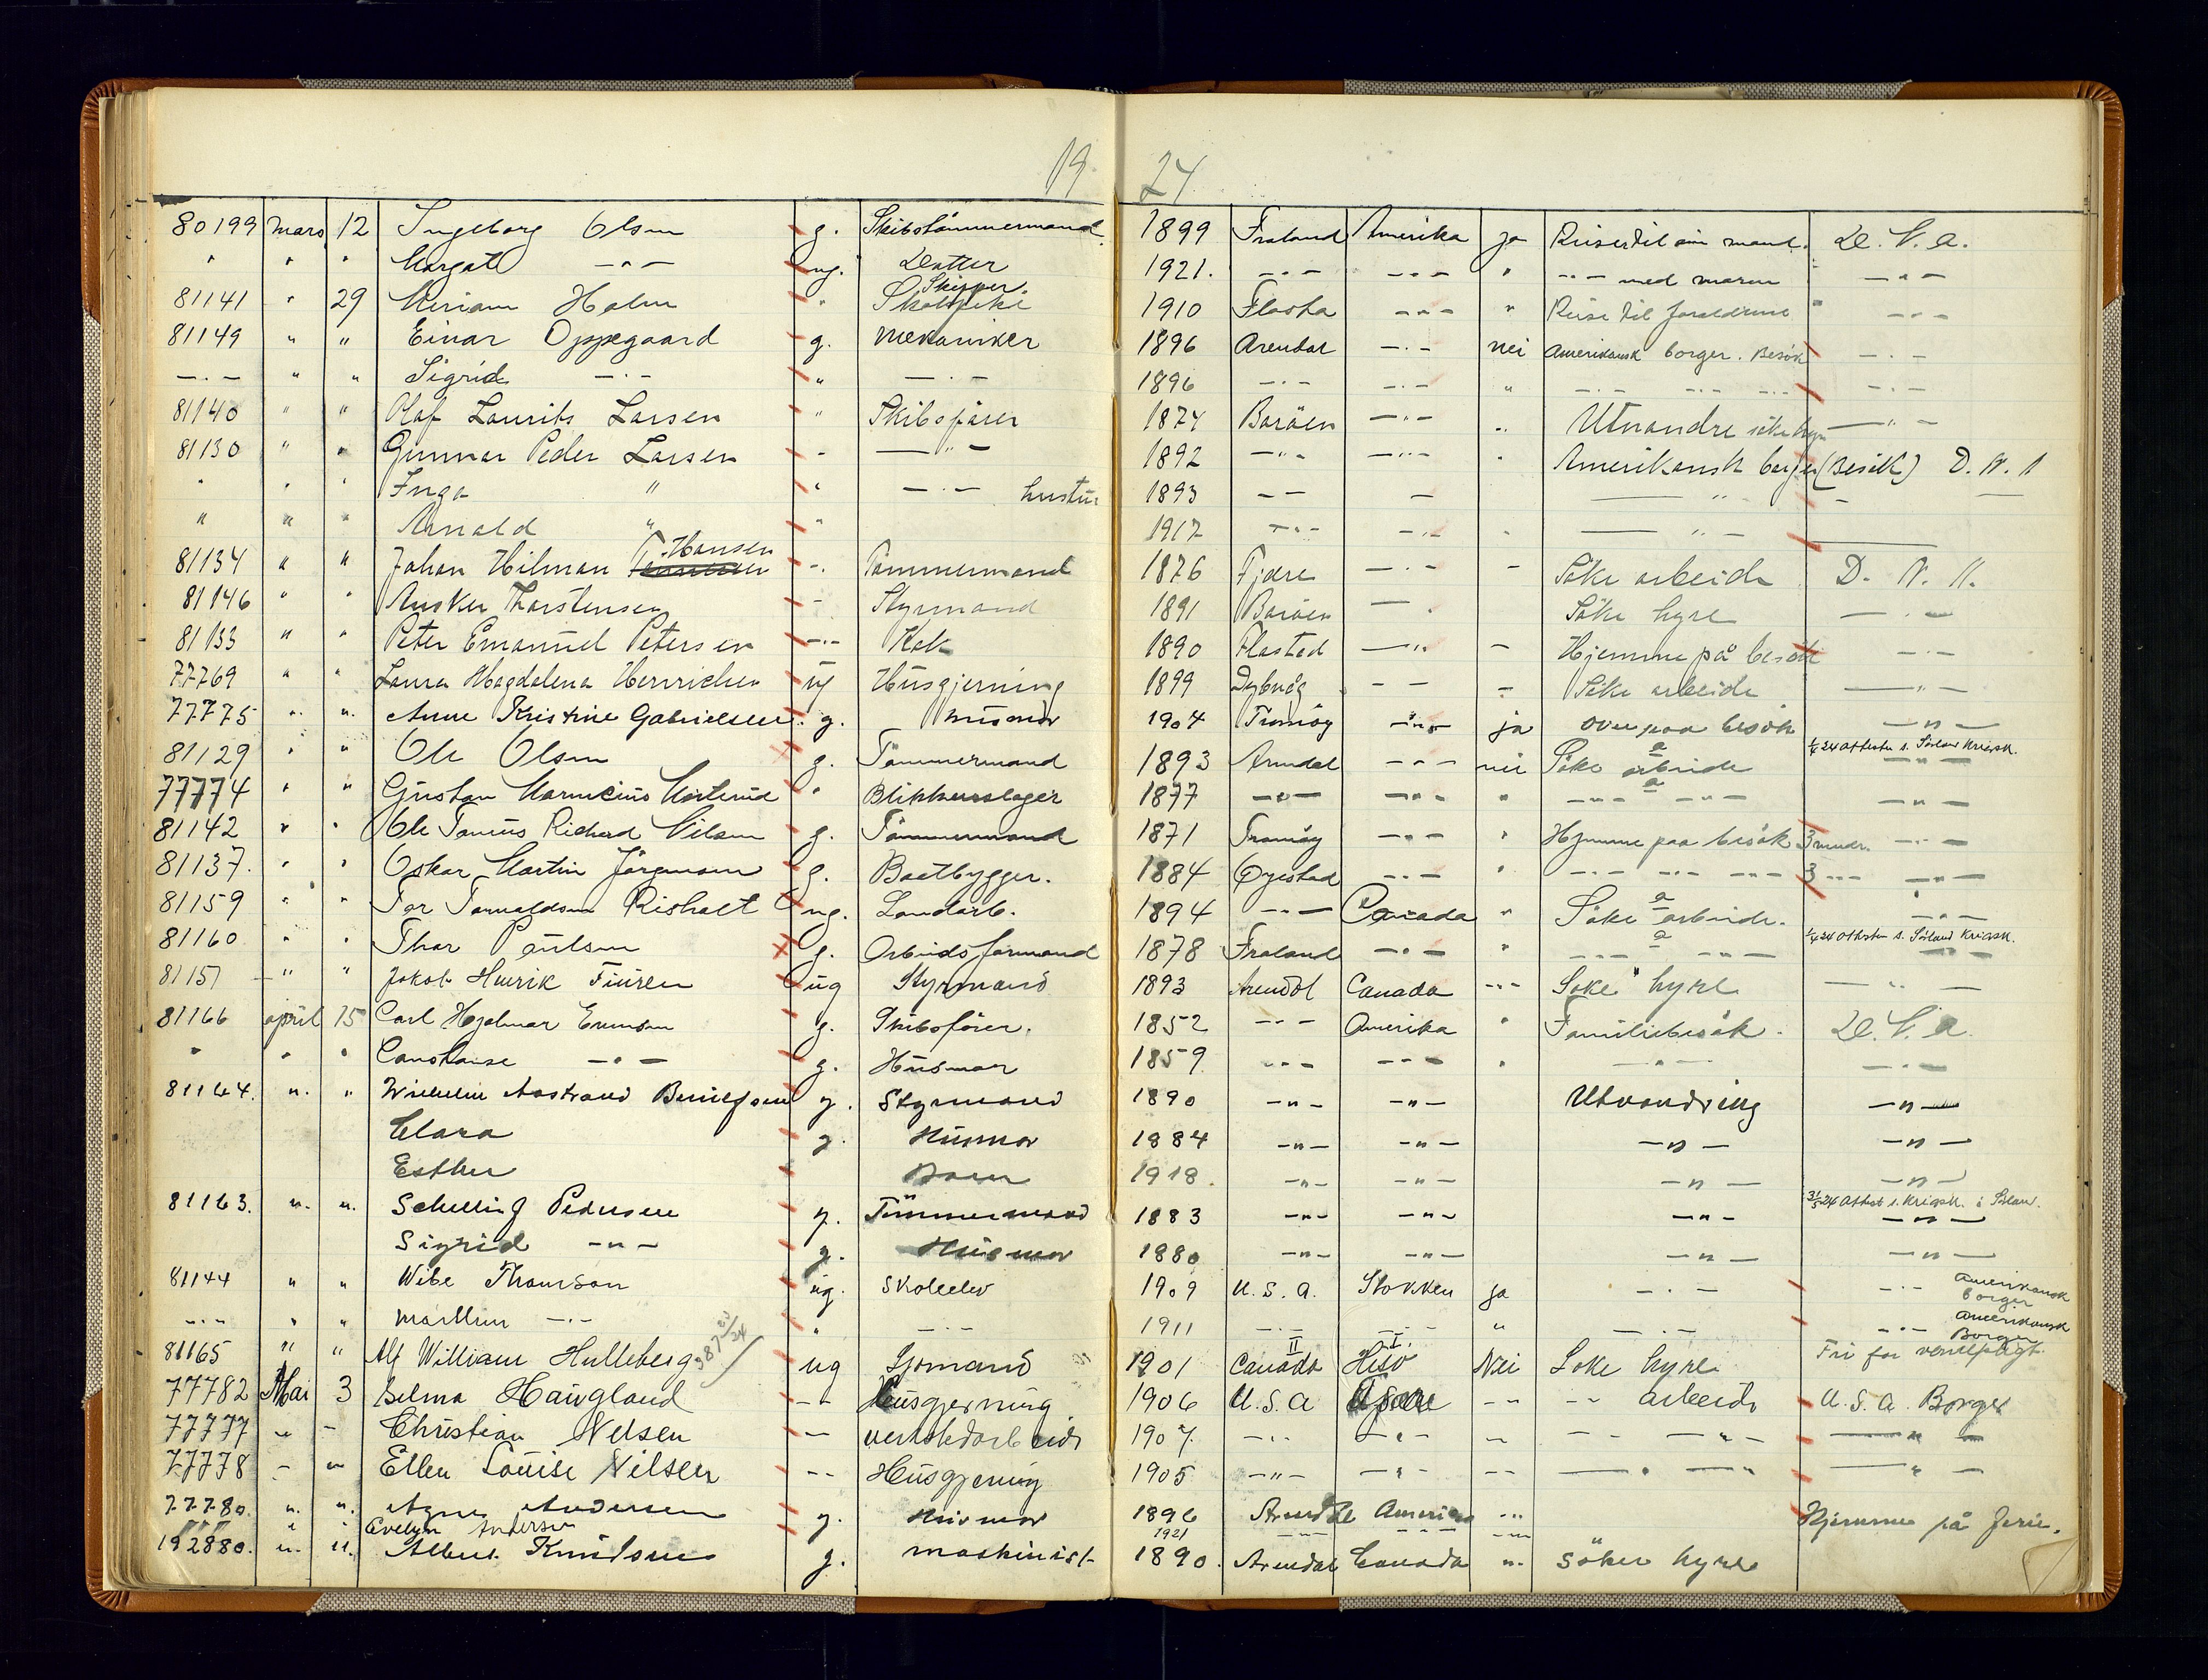 19 24
80199 Mars 12 Ingeborg Olsen g. Skibstømmermand 1899 Froland Amerika ja Reiser til sin mand. D. N. A.
" " " Margot —"— ug. Datter 1921. —"— —"— " —"— med moren —"—
81141 " 29 Miriam Holm " Skolepike Skipper 1910 Flosta —"— " Reise til foreldrene —"—
81149 " " Einar Oppegaard g. Mekaniker 1896 Arendal —"— nei Amerikansk borger. Besök —"—
—"— " " Sigrid —"— " —"— 1896 —"— —"— " —"— —"— —"— —"—
81140 " " Olaf Laurits Larsen " Skibsfører 1874 Borøen —"— " Utvandre söke hyre —"—
81130 " " Gunnar Peder Larsen " —"— 1892 —"— —"— " Amerikansk borger (Besök) D. N. A
" " " Inga " " —"— hustru 1893 —"— — —"— —
" " " Arnold " " 1917 —"— —"— " —"—
81134 " " Johan Hilman Hansen —"— Tømmermand 1876 Fjære —"— — Söke arbeide D. N. A.
81146 " " Ansker Thorstensen — Styrmand 1891 Borøen —"— Söke hyre —"—
81133 " " Peter Emanuel Petersen —"— Kok 1890 Flostad —"— — Hjemme på besök —"—
77769 " " Laura Magdalena Henrichsen ug Husgjerning 1899 Dybvåg — — — Söke arbeide —"—
77775 " " Anne Kristine Gabrielsen g. Husmor 1904 Tromøy —"— ja over paa besök —"—
81129 " " Ole Olsen g. Tømmermand 1893 Arendal —"— nei Söke arbeide a 1/4 24 Attester s. Sørland Krigsk. —"—
77774 " " Gustav " Blikkenslager 1877 —"— —"— " —"— a —"— —"—
81142 " " Ole Tomius Richard Nilsen g. Tømmermand 1871 Tromøy —"— " Hjemme paa besök 3 mndr. —"—
81137. " " Oskar Martin Jörgensen g. Baatbygger. 1884 Øyestad —"— " —"— —"— —"— 3 —"— —"—
81159 " " Tor Torvaldsen Risholt ug. Landarb. 1894 —"— Canada " Söke a arbeide. —"—
81160 " " Thor Paulsen g. Arbeidsformand 1878 Froland —"— " —"— a —"— 1/4 24 Attester s. Sørland Krigsk. —"—
81151 —"— " Jakob Henrik Finsen ug Styrmand 1893 Arendal Canada —"— Söke hyre —"—
81166 april 15 Carl Hjalmar Evensen g. Skibsfører. 1852 —"— Amerika " Familiebesök. D. N. A.
" " " Constanse —"— g. Husmor 1859. —"— —"— " —"— —"—
81164. " " Wilhelm Aastrand g. Styrmand 1890 —"— —"— Utvandring —"—
Clara g. Husmor 1884 —"— —"— —"— —"—
Esther Barn 1918. —"— —"— —"— —"—
81163. " " Schelling Pedersen g. Tömmermand 1883 —"— —"— —"— 31/3 24 Attest s. Krigsk. i Sørlan. —"—
Sigrid —"— g. Husmor 1880 —"— —"— —"— —"—
81144 " " Wibe Thomson ug. Skoleelev 1909 U. S. A. Stokken ja —"— —"— Amerikansk borger
—"— " " —"— " —"— 1911 —"— —"— " —"— —"— Amerikansk Borger
81165 " " Alf William Hulleberg 21/24 ug Sjömand 1901 II Canada I. Hisö Nei Söke hyre Fri for vernepligt.
77782 Mai 3 Selma Haugland —"— Husgjerning 1906 U. S. A —"— —"— arbeide U. S. A. Borger
77777 — — Christian Nelsen — verkstedarbeide 1907. —"— —"— — — —"— —"—
77778 — — Ellen Louise Nilsen —"— Husgjerning 1905 —"— —"— —"— —"— —"— —"—
77780. " " Agnes Andersen g. Husmor 1896 Arendal America —"— Hjemme på ferie.
" " Evelyn Andersen 1921 —"— —"— —"—
192880. " " Albert Knudsen g. maskinist 1890. Arendal Canada " söker hyre